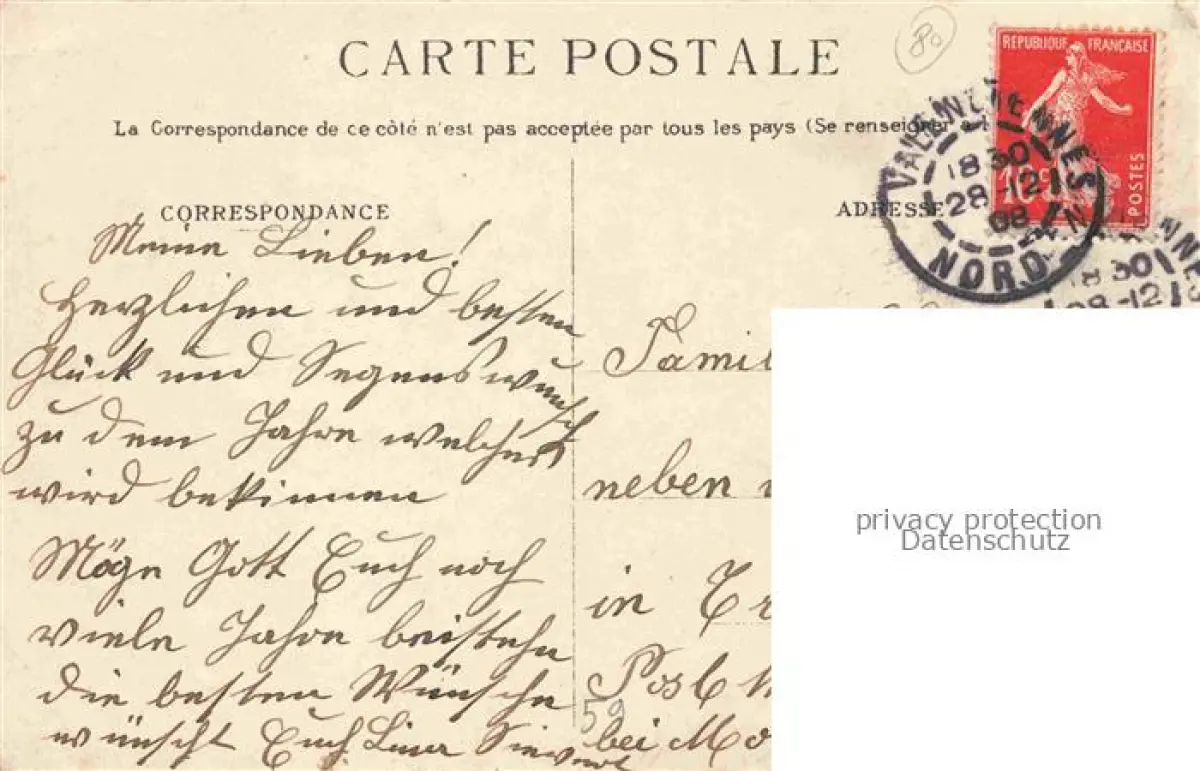 80
CARTE POSTALE
REPUBLIQUE FRANÇAISE
10c
POSTES
La Correspondance de ce côté n'est pas acceptée par tous les pays (Se renseigner à l
VALENCIENNES
18 30
28-12
08
NORD
18 30
28-12
CORRESPONDANCE
ADRESSE
Meine Lieben!
Herzlichen und besten
Glück und Segenswunsch
zu dem Jahre welches
wird bekinnen
Möge Gott Euch noch
viele Jahre beistehn
die besten Wünsche
wünscht Euch Sievert
Famil
neben
in
Post
bei Mo
59
privacy protection
Datenschutz